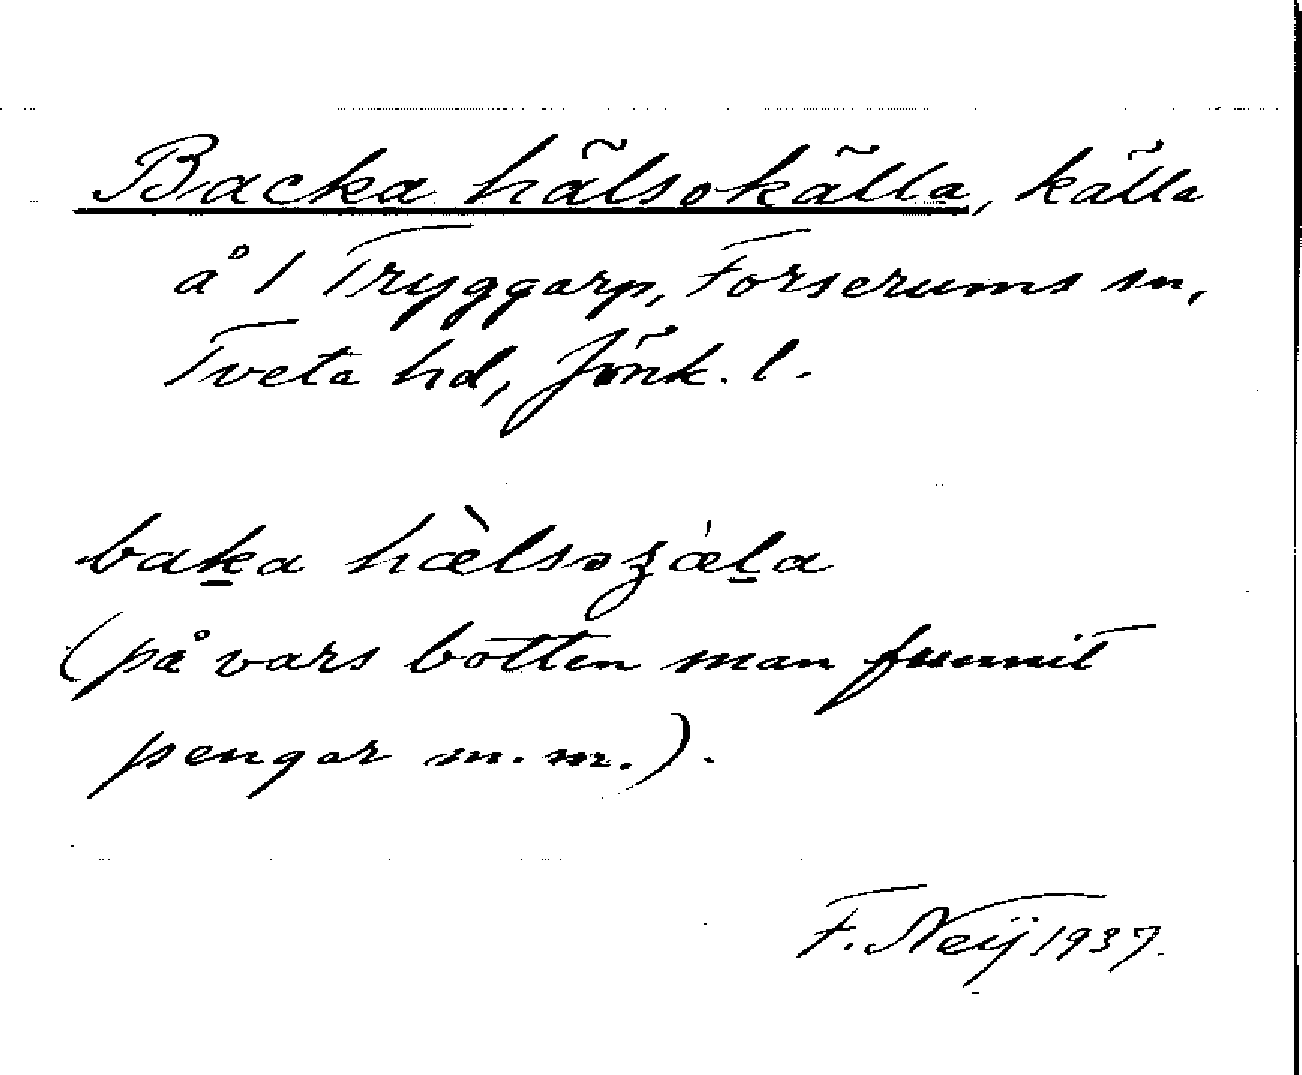 Backa hälsokälla, källa
å 1 Tryggarp, Forserums sn,
Tveta hd, Jönk. l.
baḵa hæ̀lsoʒæ̀ḻa
(på vars botten man funnit
pengar m. m.).
F. Neij 1937.